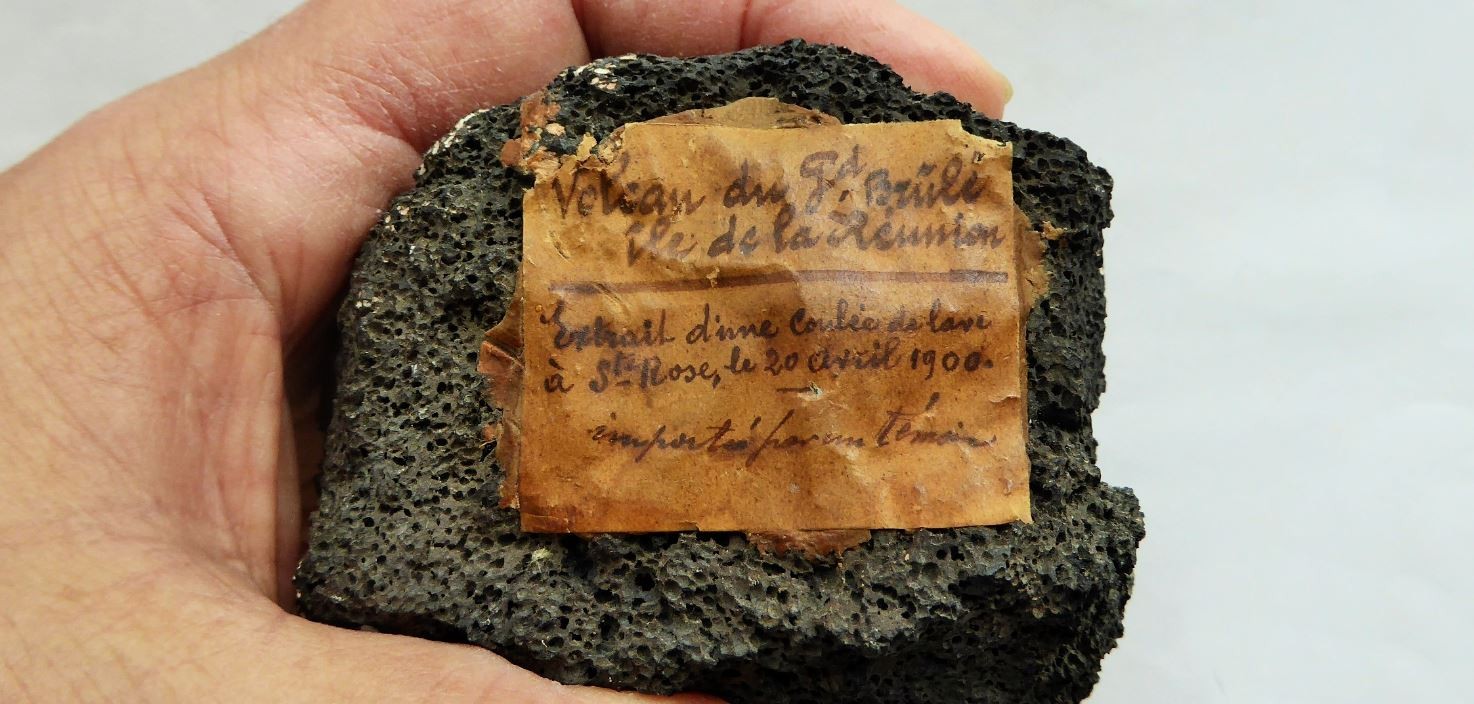 Volcan du Gd. Brûlé
Ile de la Réunion
Extrait d'une Coulée de lave
à Ste Rose, le 20 avril 1900.
importé par un témoin